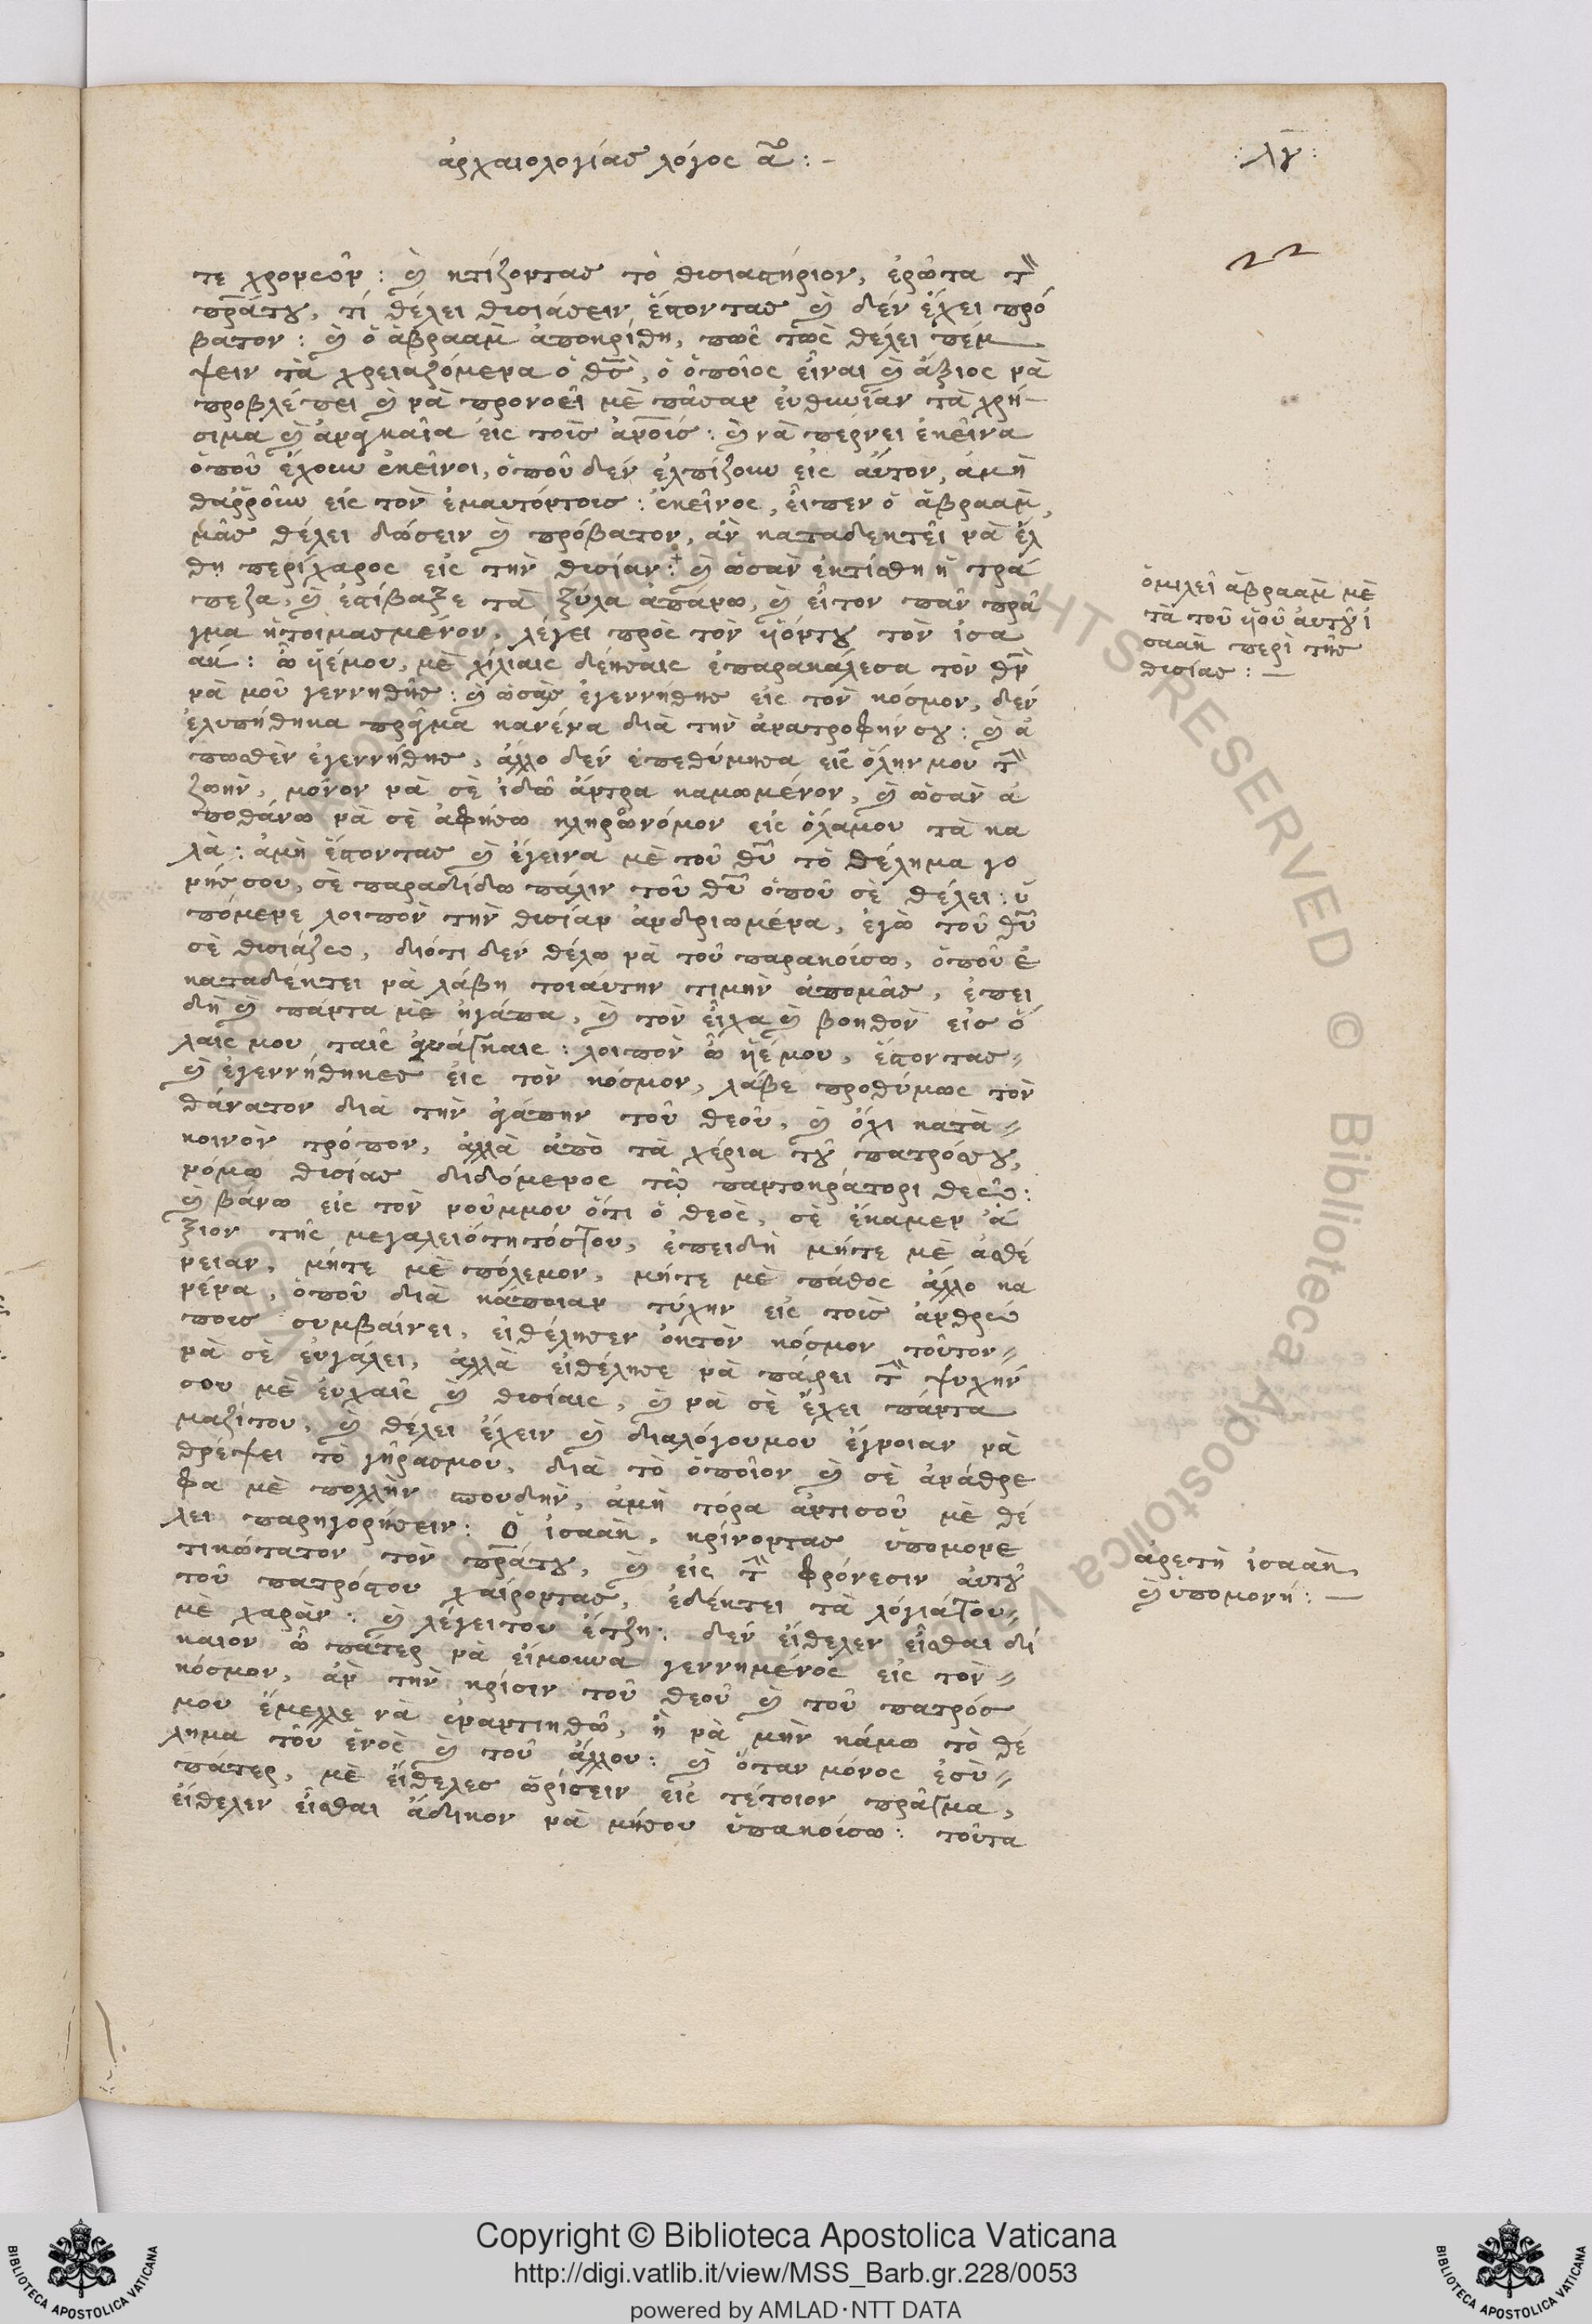 ἀρχαιολογίας λόγος α^ος : -
: λγ :
22
τε χρονῶν : καὶ κτίζοντας τὸ θισιαστήριον, ἐρῶτα τὴν
πρᾶτου, τί θέλει θισιάσειν ἔστοντας καὶ δέν ἔχει πρό
βατον : καὶ ὁ ἀβραὰμ ἀποκρίθη, πῶς τῶς θέλει πέμ
ψειν τὰ χρειαζόμενα ὁ θς, ὁ ὁποῖος εἶναι καὶ ἄξιος νὰ
προβλέπει καὶ νὰ προνοεῖ μὲ πᾶσαν εὐθινίαν τὰ χρή
σιμα καὶ ἀναγκαῖα εἰς τοῖς ἀνοίς : καὶ νὰ πέρνει ἐκεῖνα
ὁποῦ ἔχουν ἐκεῖνοι, ὁποῦ δέν ἐλπίζουν εἰς αὐτὸν, ἀμὴ
θαῤῥοῦν εἰς τὸν ἐμαυτόντοις : ἐκεῖνος, εἶπεν ὁ ἀβραὰμ,
μᾶς θέλει δώσειν καὶ πρόβατον, ἂν καταδεκτεῖ νὰ ἔλ
θη περίχαρος εἰς τὴν θισίαν : καὶ ὡσὰν ἐκτίσθη ἡ τρά
πεζα, καὶ ἐσίβαξε τὰ ξύλα ἀπάνω, καὶ εἶτον πᾶν πρᾶ
γμα ἡτοιμασμένον, λέγει πρὸς τὸν ὑόντου τὸν ἰσα
ὰκ : ὦ ὑέμου, μὲ χίλιαις δέησαις ἐπαρακάλεσα τὸν θν
νὰ μοῦ γεννηθῆς : καὶ ὡσὰν ἐγεννήθης εἰς τὸν κόσμον, δέν
ἐλυπήθηκα πρᾶγμα κανένα διὰ τὴν ἀνατροφήνσου : καὶ ἀ
πωσθὲν ἐγεννήθης, ἄλλο δέν ἐπεθύμησα εἰς ὅλην μου τὴν
ζωὴν, μόνον νὰ σὲ ἰδῶ ἄντρα καμωμένον, καὶ ὡσὰν ἀ
ποθάνω νὰ σὲ ἀφήσω κληρωνόμον εἰς ὅλάμου τὰ κα
λὰ : ἀμὴ ἔστοντας καὶ ἔγεινα μὲ τοῦ θῦ τὸ θέλημα γο
νής σου, σὲ παραδίδω πάλιν τοῦ θῦ ὁποῦ σὲ θέλει : ὑ
πόμενε λοιπὸν τὴν θισίαν ἀνδριωμένα, ἐγὼ τοῦ θῦ
σὲ θισιάζω, διότι δέν θέλω νὰ τοῦ παρακοίσω, ὁποῦ ἐ
καταδέκτει νὰ λάβη τοιαύτην τιμὴν ἀπομᾶς, ἐπει
δὴ καὶ πάντα μὲ ἠγάπα, καὶ τὸν εἶχα καὶ βοηθὸν εἰς ὅ
λαις μου ταῖς ἀνάγκαις : λοιπὸν ὦ ὑέμου, ἔστοντας
καὶ ἐγεννήθηκες εἰς τὸν κόσμον, λάβε προθύμως τὸν
θάνατον διὰ τὴν ἀγάπην τοῦ θεοῦ, καὶ ὄχι κατὰ
κοινὸν τρόπον, ἀλλὰ ἀπὸ τὰ χέρια τοῦ πατρόσου,
νόμω θισίας διδόμενος τῶ παντοκράτορι θεῶ :
καὶ βάνω εἰς τὸν νοῦμμου ὅτι ὁ θεὸς, σὲ ἔκαμεν ἄ
ξιον τῆς μεγαλειότητόστου, ἐπειδὴ μήτε μὲ ἀσθέ
νειαν, μήτε μὲ πόλεμον, μήτε μὲ πάθος ἄλλο κα
νένα, ὁποῦ διὰ κάποιαν τύχην εἰς τοῖς ἀνθρώ
ποις συμβαίνει, εἰθέλησεν ὀκτὸν κόσμον τοῦτον
νὰ σὲ εὐγάλει, ἀλλὰ εἰθέλησε νὰ πάρει τὴν ψυχήν
σου μὲ εὐχαῖς καὶ θισίαις, καὶ νὰ σὲ ἔχει πάντα
μαζίτου, καὶ θέλει ἔχειν καὶ διαλόγουμου ἔγνοιαν νὰ
θρέψει τὸ γῆρασμου, διὰ τὸ ὁποῖον καὶ σὲ ἀνάθρε
φα μὲ πολλὴν σπουδὴν, ἀμὴ τόρα ἀντισοῦ μὲ θέ
λει παρηγορήσειν : Ὁ ἰσαὰκ, κρίνοντας ὑπομονε
τικώτατον τὸν πρᾶτου, καὶ εἰς τὴν φρόνεσιν αὐτοῦ
τοῦ πατρόστου χαίροντας, ἐδέκτει τὰ λόγιάτου
μὲ χαρὰν : καὶ λέγειτου ἔτζη : δεν εἴθελεν εἶσθαι δί
καιον ὦ πάτερ νὰ εἴμουνα γεννημένος εἰς τὸν
κόσμον, ἂν τὴν κρίσιν τοῦ θεοῦ καὶ τοῦ πατρός
μου ἔμελλε νὰ ἐναντιηθῶ, ἢ νὰ μὴν κάμω τὸ θέ
λημα τοῦ ἑνὸς καὶ τοῦ ἄλλου : καὶ ὅταν μόνος ἐσὺ
πάτερ, μὲ εἴθελες ὡρίσειν εἰς τέτοιον πρᾶγμα,
εἴθελεν εἶσθαι ἄδικον νὰ μήσου ὑπακοίσω : τοῦτα
ὁμιλεῖ ἀβραὰμ μὲ
τὰ τοῦ ὑοῦ αὐτοῦ ἰ
σαὰκ περὶ τῆς
θισίας : —
ἀρετὴ ἰσαὰκ,
καὶ ὑπομονή : —
Copyright © Biblioteca Apostolica Vaticana
http://digi.vatlib.it/view/MSS_Barb.gr.228/0053
powered by AMLAD·NTT DATA